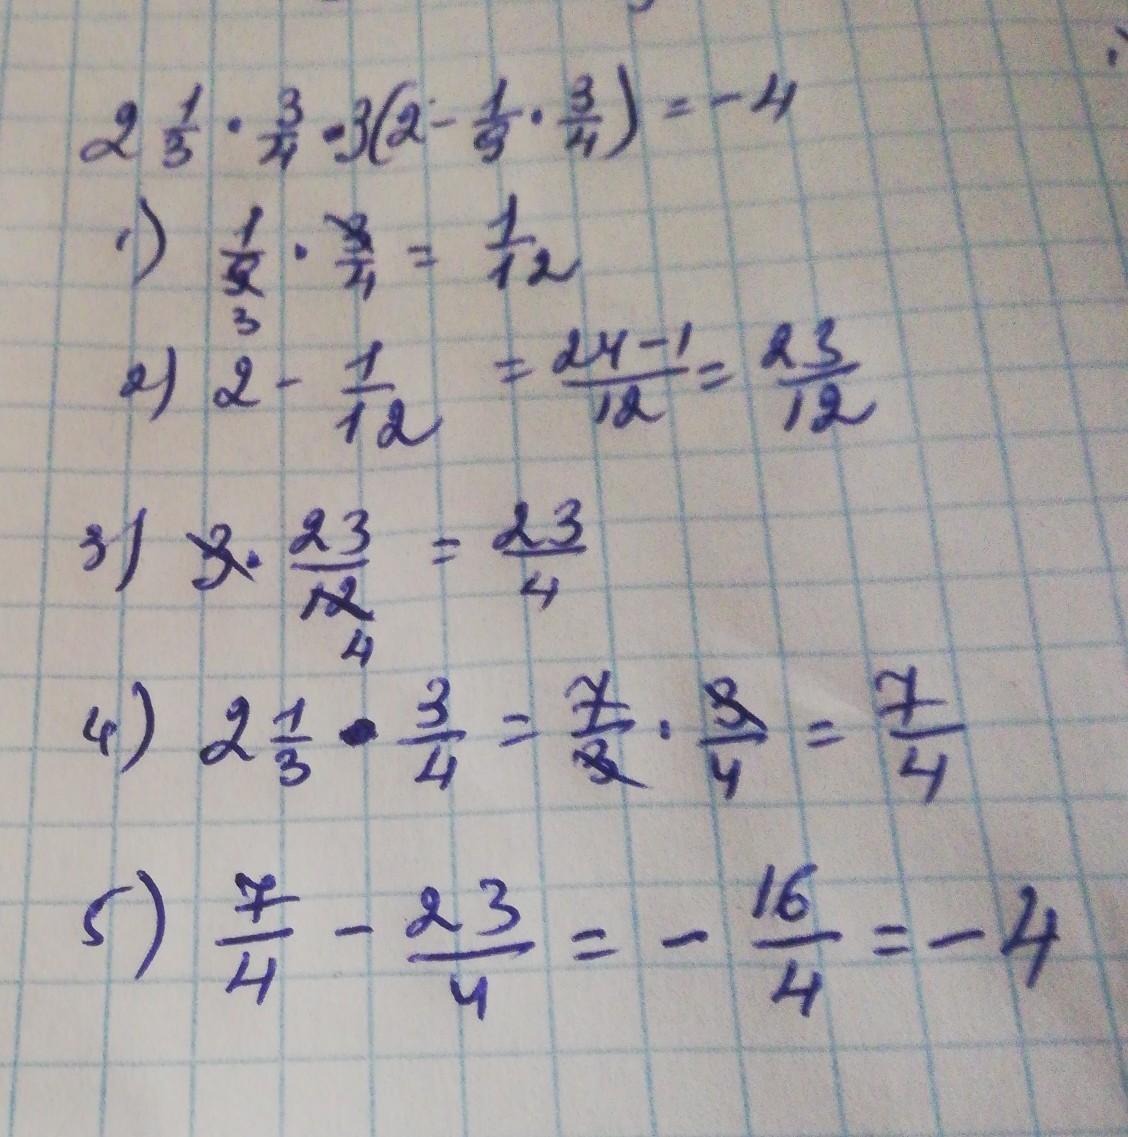 2 1/3 · 3/4 - 3(2 - 1/9 · 3/4) = -4
1) 1/9 3 · 3/4 = 1/12
2) 2 - 1/12 = 24-1/12 = 23/12
3) 3 · 23/12 4 = 23/4
4) 2 1/3 · 3/4 = 7/3 · 3/4 = 7/4
5) 7/4 - 23/4 = - 16/4 = - 4